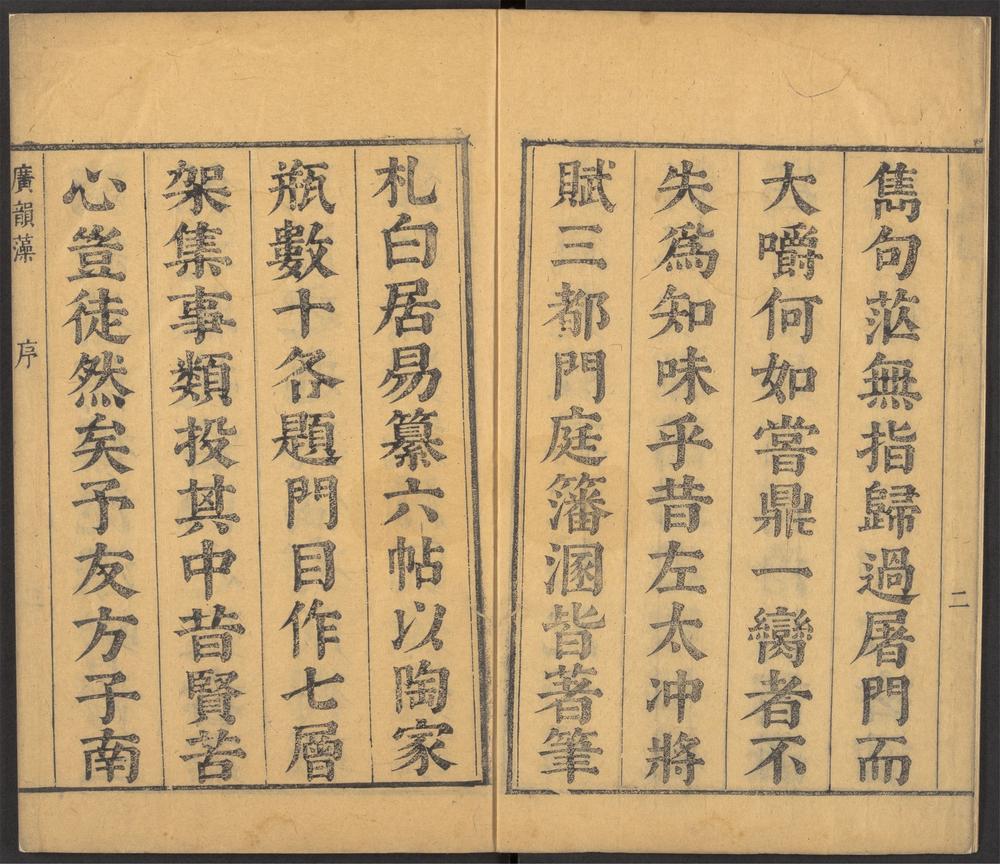 二
雋句茫無指歸過屠門而
大嚼何如嘗鼎一臠者不
失爲知味乎昔左太冲將
賦三都門庭籓溷皆著筆
札白居易纂六帖以陶家
瓶數十各題門目作七層
架集事類投其中昔賢苦
心豈徒然矣予友方子南
廣韻藻 序